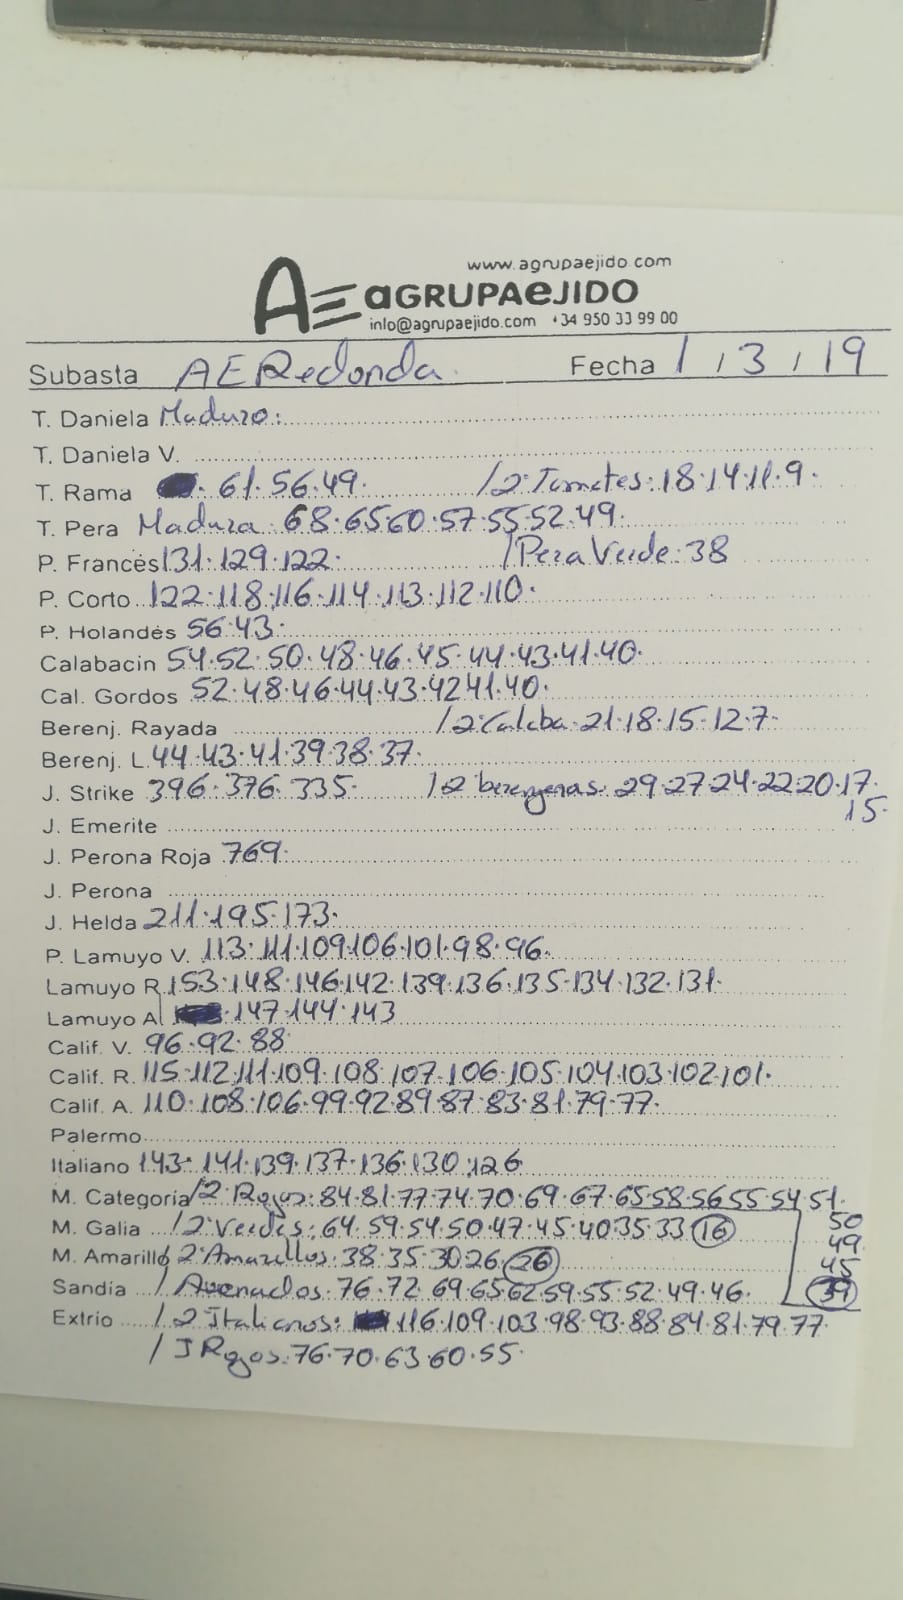 www.agrupaejido.com
AE aGRUPAeJIDO
info@agrupaejido.com +34 950 33 99 00
Subasta AE Redonda. Fecha 1 / 3 / 19
T. Daniela Maduro:
T. Daniela V.
T. Rama 61.56.49. /2ª Tomates: 18.14.11.9.
T. Pera Madura 68.65.60.57.55.52.49.
P. Francés 131.129.122. /Pera Verde: 38
P. Corto 122.118.116.114.113.112.110.
P. Holandés 56.43.
Calabacin 54.52.50.48.46.45.44.43.41.40.
Cal. Gordos 52.48.46.44.43.42.41.40.
Berenj. Rayada /2ª Calaba. 21.18.15.12.7.
Berenj. L 44.43.41.39.38.37.
J. Strike 396.376.335. /2ª berengenas. 29.27.24.22.20.17.
15.
J. Emerite
J. Perona Roja 769.
J. Perona
J. Helda 211.195.173.
P. Lamuyo V. 113.111.109.106.101.98.96.
Lamuyo R. 153.148.146.142.139.136.135.134.132.131.
Lamuyo A 147.144.143
Calif. V. 96.92.88
Calif. R. 115.112.111.109.108.107.106.105.104.103.102.101.
Calif. A. 110.108.106.99.92.89.87.83.81.79.77.
Palermo
Italiano 143.141.139.137.136.130.126
M. Categoría /2ª Rojos: 84.81.77.74.70.69.67.65.58.56.55.54.51.
50
M. Galia /2ª Verdes: 64.59.54.50.47.45.40.35.33 16
49
M. Amarillo 2ª Amarillos. 38.35.30.26. 26
45
Sandía / Asurcados. 76.72.69.65.62.59.55.52.49.46. 39
Extrio /2ª Italianos: 116.109.103.98.93.88.84.81.79.77.
/ J Rojos: 76.70.63.60.55.